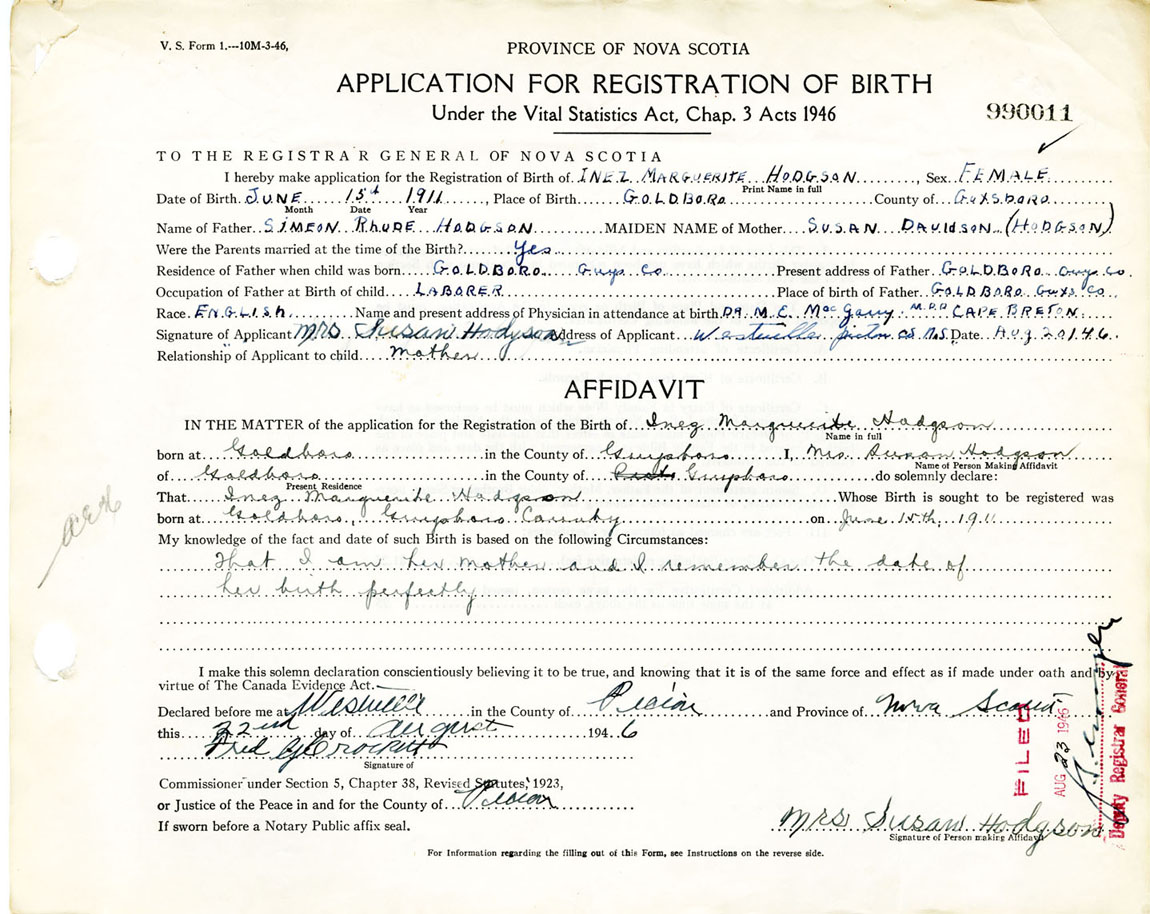 V. S. Form 1.---10M-3-46,
PROVINCE OF NOVA SCOTIA
APPLICATION FOR REGISTRATION OF BIRTH
Under the Vital Statistics Act, Chap. 3 Acts 1946
990011
TO THE REGISTRAR GENERAL OF NOVA SCOTIA
I hereby make application for the Registration of Birth of INEZ MARGUERITE HODGSON, Sex FEMALE
Print Name in full
Date of Birth JUNE 15 1911, Place of Birth GOLDBORO County of GUYSBORO
Month Date Year
Name of Father SIMEON RHUDE HODGSON MAIDEN NAME of Mother SUSAN DAVIDSON (HODGSON)
Were the Parents married at the time of the Birth? Yes
Residence of Father when child was born GOLDBORO Guys Co Present address of Father GOLDBORO Guys Co.
Occupation of Father at Birth of child LABORER Place of birth of Father GOLDBORO GUYS Co
Race ENGLISH Name and present address of Physician in attendance at birth DR. M.E. MacGarry CAPE BRETON
Signature of Applicant MRS Susan Hodgson Address of Applicant Westville N.S. Date Aug 20 1946
Relationship of Applicant to child Mother
AFFIDAVIT
IN THE MATTER of the application for the Registration of the Birth of Inez Marguerite Hodgson
Name in full
born at Goldboro in the County of Guysboro I, Mrs Susan Hodgson
Name of Person Making Affidavit
of Goldboro in the County of Guysboro do solemnly declare:
Present Residence
That Inez Marguerite Hodgson Whose Birth is sought to be registered was
born at Goldboro, Guysboro County on June 15th, 1911
My knowledge of the fact and date of such Birth is based on the following Circumstances:
That I am her mother and I remember the date of
her birth perfectly
I make this solemn declaration conscientiously believing it to be true, and knowing that it is of the same force and effect as if made under oath and by
virtue of The Canada Evidence Act.
Declared before me at Westville in the County of Pictou and Province of Nova Scotia
this 22nd day of August 1946
Fred G Crockett
Signature of
Commissioner under Section 5, Chapter 38, Revised Statutes, 1923,
or Justice of the Peace in and for the County of Pictou
If sworn before a Notary Public affix seal.
MRS Susan Hodgson
Signature of Person making Affidavit
For Information regarding the filling out of this Form, see Instructions on the reverse side.
FILED
AUG 23 1946
Deputy Registrar General